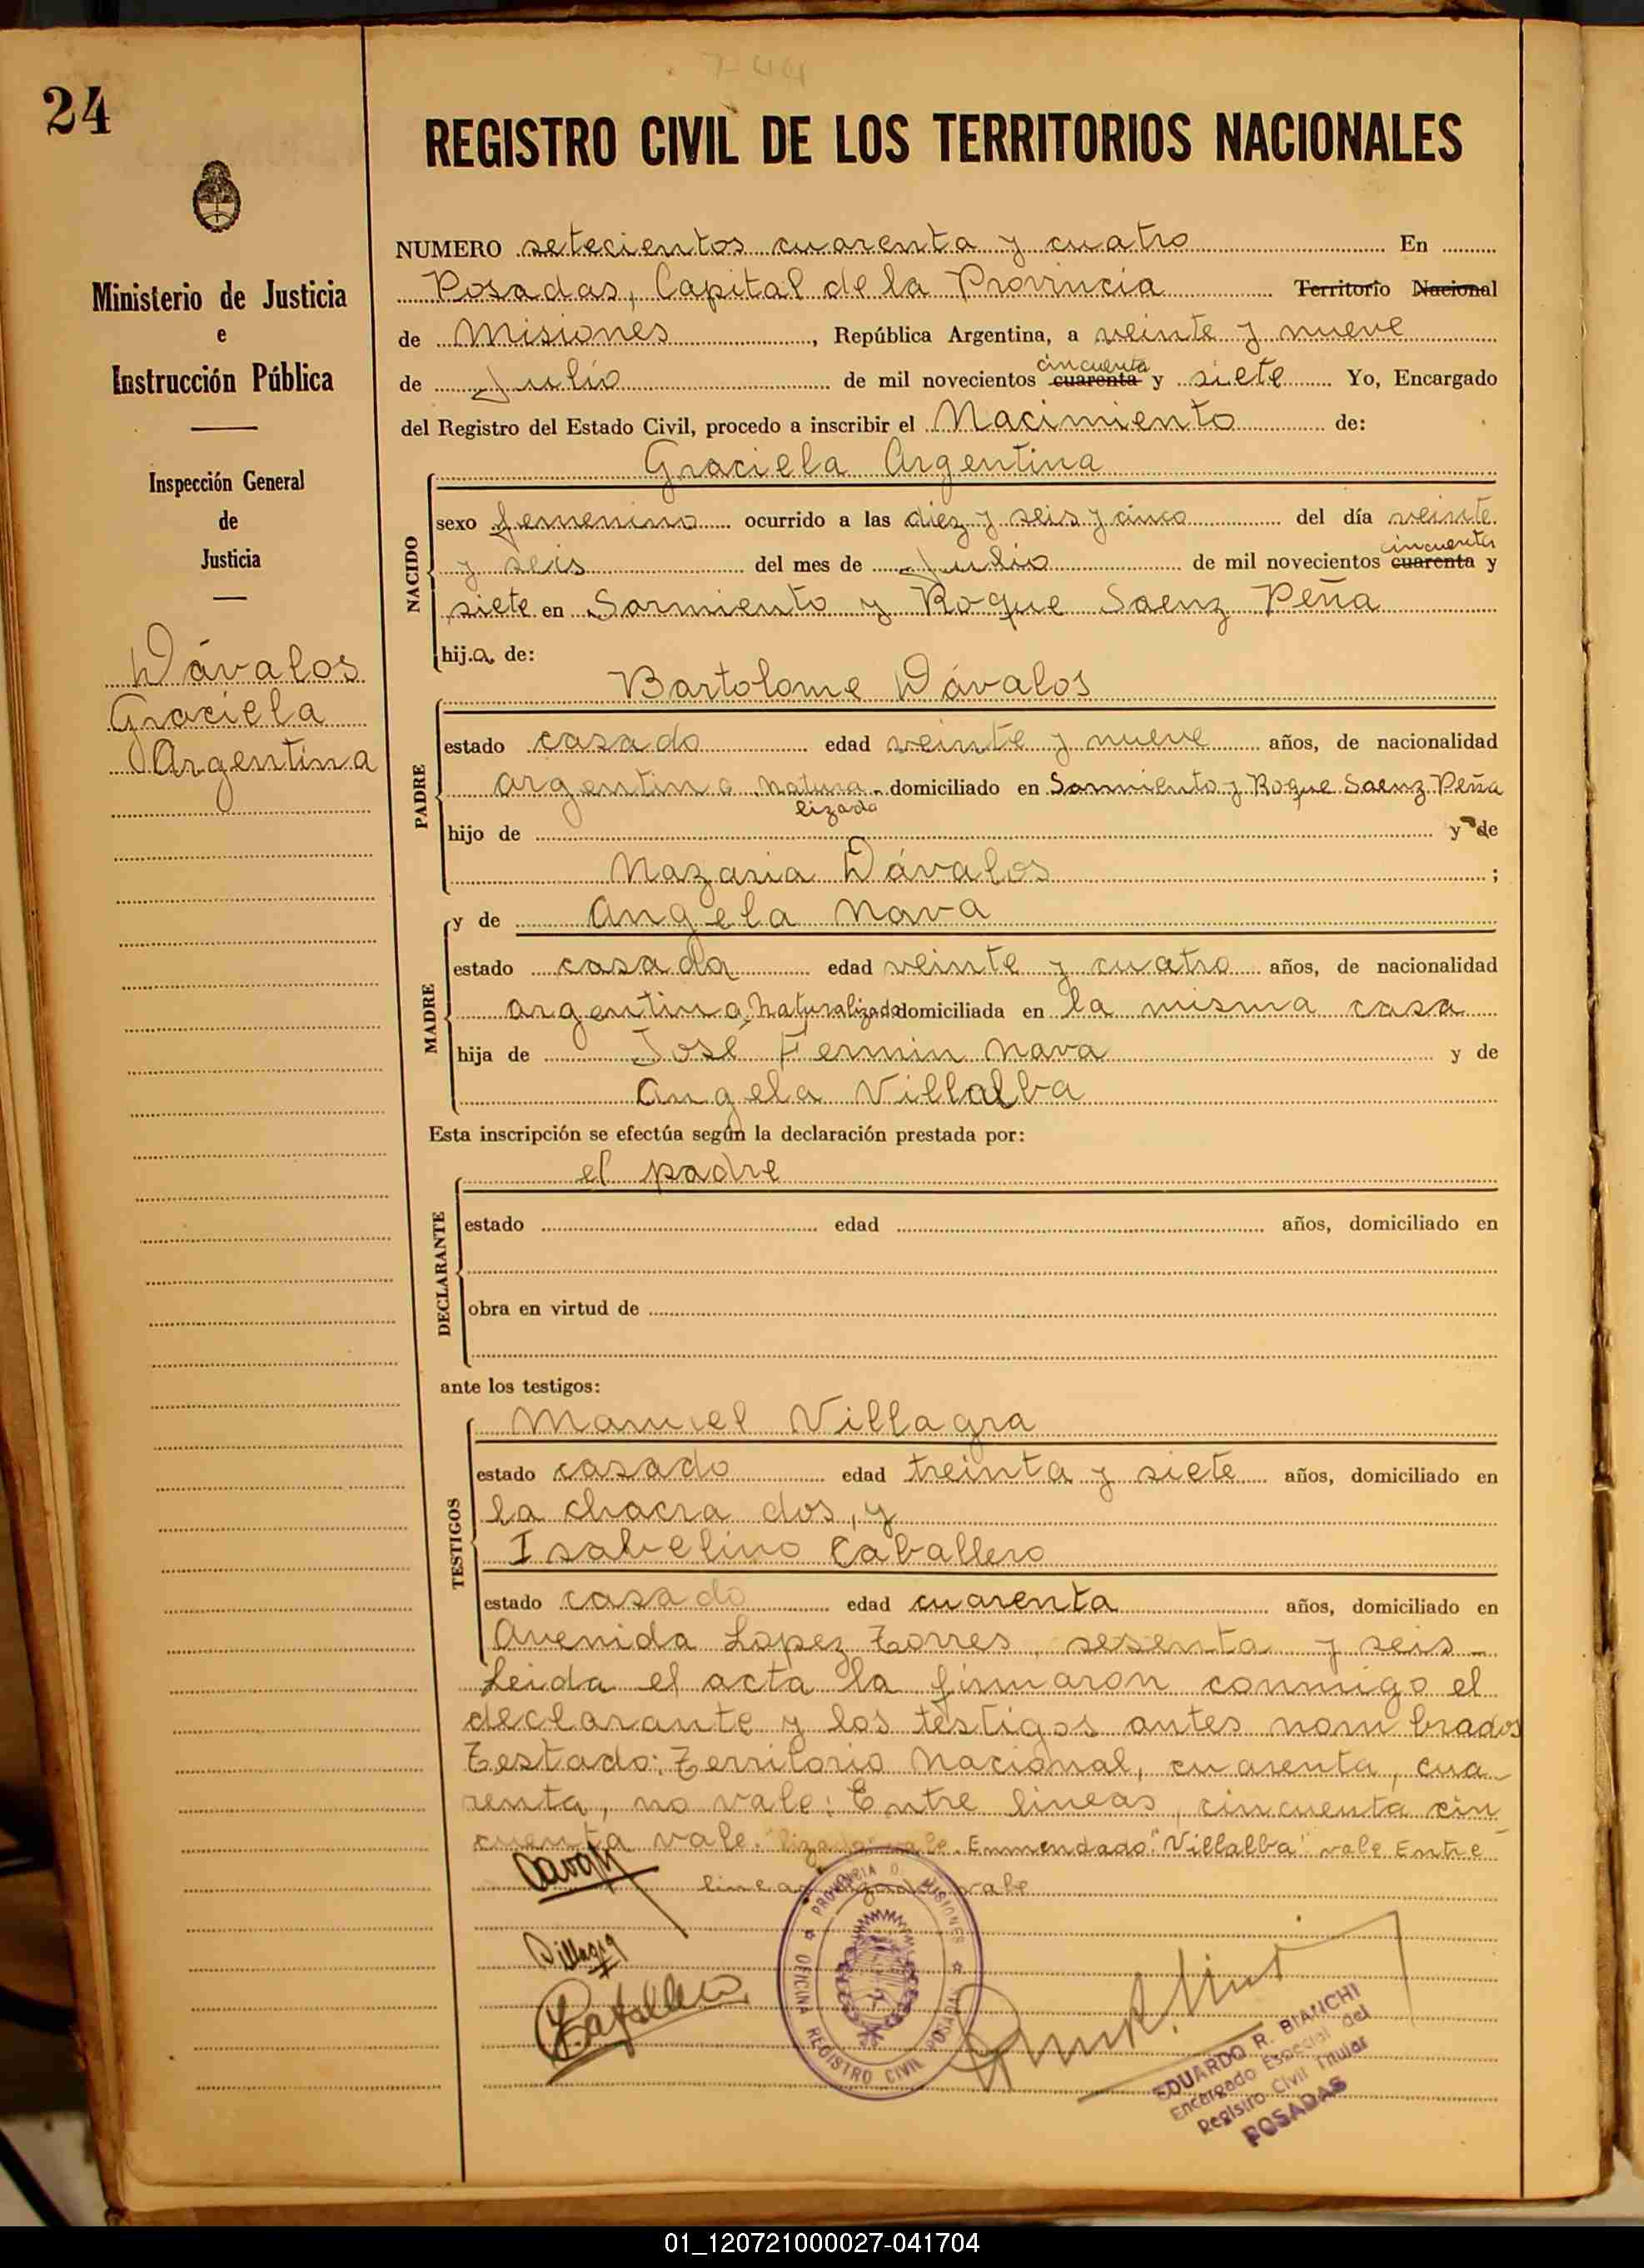 744
24
REGISTRO CIVIL DE LOS TERRITORIOS NACIONALES
Ministerio de Justicia
e
Instrucción Pública
Inspección General
de
Justicia
Dávalos
Graciela
Argentina
NUMERO setecientos cuarenta y cuatro En
Posadas, Capital de la Provincia Territorio Nacional
de Misiones, República Argentina, a veinte y nueve
cincuenta
de Julio de mil novecientos cuarenta y siete Yo, Encargado
del Registro del Estado Civil, procedo a inscribir el Nacimiento de:
Graciela Argentina
NACIDO
sexo femenino ocurrido a las diez y seis y cinco del día veinte
cincuenta
y seis del mes de Julio de mil novecientos cuarenta y
siete en Sarmiento y Roque Saenz Peña
hija de:
Bartolome Dávalos
PADRE
estado casado edad veinte y nueve años, de nacionalidad
argentino natura- domiciliado en Sarmiento y Roque Saenz Peña
lizado
hijo de y de
Nazaria Dávalos ;
MADRE
y de Angela Nava
estado casada edad veinte y cuatro años, de nacionalidad
argentina Naturalizada domiciliada en la misma casa
hija de José Fermin Nava y de
Angela Villalba
Esta inscripción se efectúa según la declaración prestada por:
el padre
DECLARANTE
estado edad años, domiciliado en
obra en virtud de
ante los testigos:
Manuel Villagra
TESTIGOS
estado casado edad treinta y siete años, domiciliado en
la chacra dos, y
Isabelino Caballero
estado casado edad cuarenta años, domiciliado en
Avenida Lopez Torres, sesenta y seis-
Leida el acta la firmaron conmigo el
declarante y los testigos antes nombrados
Testado: Territorio Nacional, cuarenta, cua-
renta, no vale: Entre lineas, cincuenta cin
cuenta vale. "lizado" vale. Enmendado: "Villalba" vale Entre
lineas vale
Villagra
Caballero
PROVINCIA DE MISIONES
OFICINA REGISTRO CIVIL POSADAS
EDUARDO R. BIANCHI
Encargado Especial del
Registro Civil Titular
POSADAS
01_120721000027-041704